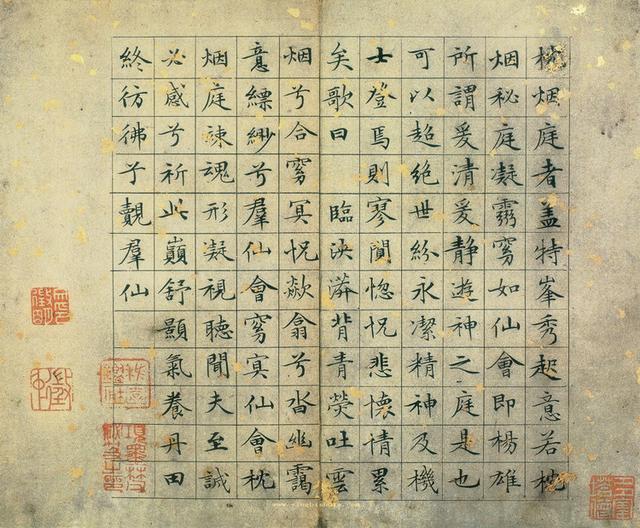 枕烟庭者盖特峯秀起意若枕
烟秘庭凝霱窅如仙會即楊雄
所謂爰清爰靜遊神之庭是也
可以超絕世紛永潔精神及機
士登焉則寥闃惚怳悲懷情累
矣歌曰 臨泱漭背青熒吐雲
烟兮合窅冥怳欻翕兮沓幽靄
意縹緲兮羣仙會窅冥仙會枕
烟庭竦魂形凝視聽聞夫至誠
必感兮祈此巔舒顥氣養丹田
終彷彿乎覿羣仙